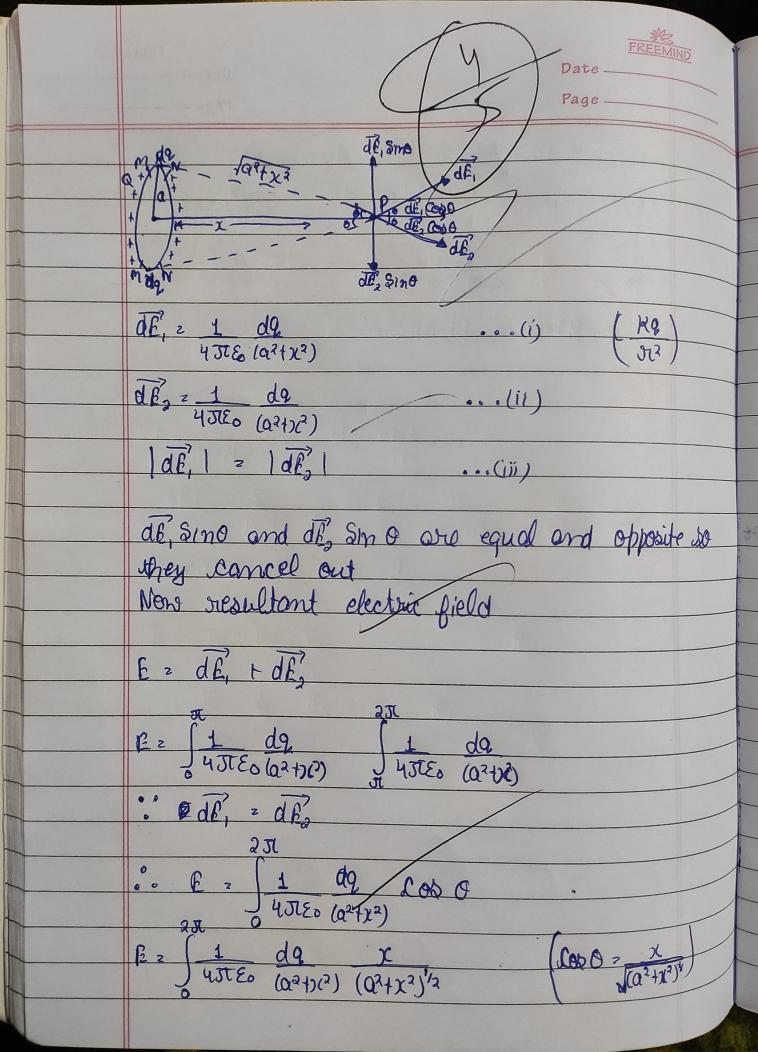 FREEMIND
Date
Page
4
5
dq
M N
Q
a
√a²+x²
x
dE₁ Sinθ
dE₁
P
θ θ
dE₁ Cosθ
dE₂ Cosθ
dE₂
dE₂ Sinθ
M N
dq
dE₁ = 1/4πε₀ dq/(a²+x²) ...(i) (Kq/r²)
dE₂ = 1/4πε₀ dq/(a²+x²) ...(ii)
|dE₁| = |dE₂| ...(iii)
dE₁ Sinθ and dE₂ Sin θ are equal and opposite so
they cancel out
Now resultant electric field
E = dE₁ + dE₂
E = ∫₀^π 1/4πε₀ dq/(a²+x²) ∫π^2π 1/4πε₀ dq/(a²+x²)
∵ dE₁ = dE₂
∴ E = ∫₀^2π 1/4πε₀ dq/(a²+x²) Cos θ
E = ∫₀^2π 1/4πε₀ dq/(a²+x²) x/(a²+x²)^1/2 (Cos θ = x/√(a²+x²)